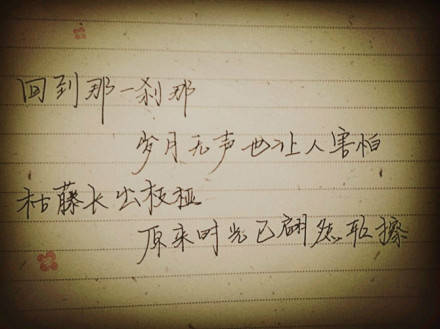 回到那一刹那
岁月无声也让人害怕
枯藤长出枝桠
原来时光已翩然轻擦